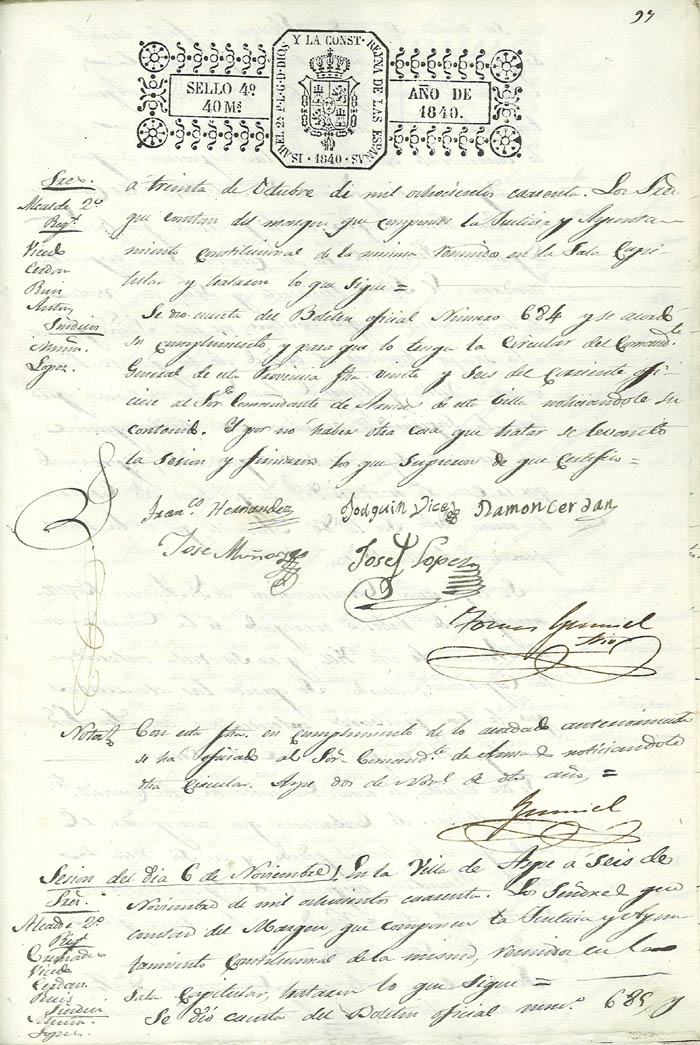 97
ISABEL 2ª P. L. G. D. DIOS Y LA CONST. REYNA DE LAS ESPAÑAS
· 1840 ·
SELLO 4º
40 Mˢ
AÑO DE
1840.
Sres.
Alcalde 2º
Regˢ
Vicel
Cerdan
Ruiz
Anton
Sindicos
Muñoz
Lopez
á treinta de Octubre de mil ochocientos cuarenta. Los Sres
que constan del margen que componen la Justicia y Ayunta-
miento Constitucional de la misma reunidos en la Sala Capi-
tular y trataron lo que sigue =
Se dio cuenta del Boletin oficial Numero 684 y se acordó
su cumplimiento, y para que lo tenga la Circular del Comandᵗᵉ
General de esta Provincia fha. veinte y seis del corriente ofi-
ciese al Sor. Comandante de Armas de esta villa noticiandole su
contenido. Y por no haber otra cosa que tratar se levantó
la Sesion y firmaron los que supieron de que Certifico =
Franᶜᵒ Hernandez
Joaquin Vicel
Ramon Cerdan
Jose Muñoz
Josef Lopez
Tomas Gumiel
Srio
Nota
Con esta fha. en cumplimiento de lo acordado anteriormente
se ha oficiado al Sor. Comandᵗᵉ de Armas noticiandole
dha Circular. Aspe dos de Novᵉ de dho año, =
Gumiel
Sesion del dia 6 de Noviembre
En la Villa de Aspe á Seis de
Sres.
Alcalde 2º
Regˢ
Vicel
Cerdan
Ruiz
Sindicos
Muñoz
Lopez
Noviembre de mil ochocientos cuarenta. Los Señores que
constan del Margen que componen la Justicia y Ayun-
tamiento Constitucional de la misma, reunidos en la
Sala Capitular, trataron lo que sigue =
Se dió cuenta del Boletin oficial numº 685, y